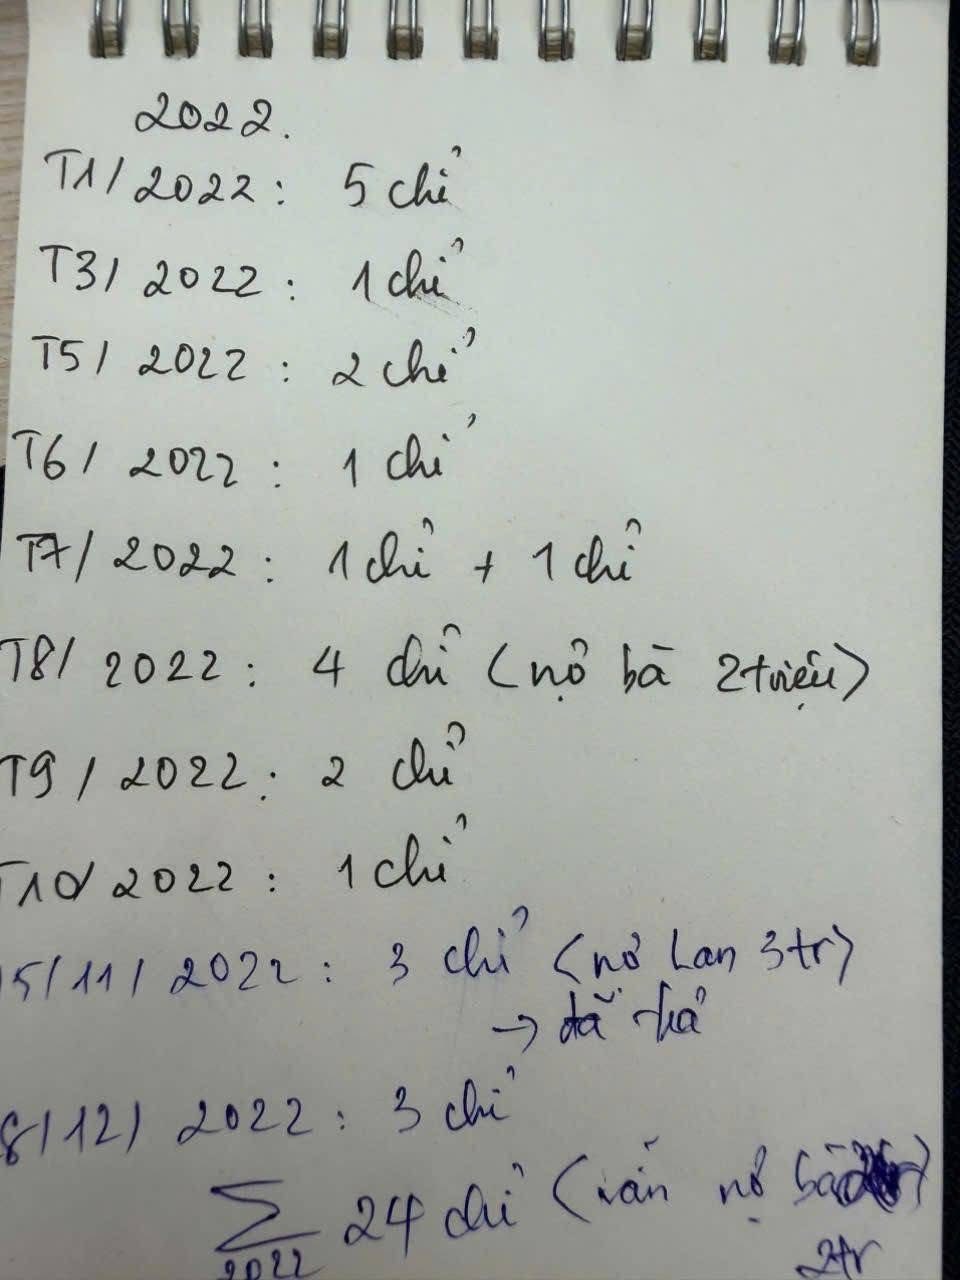 2022.
T1/2022: 5 chỉ
T3/2022: 1 chỉ
T5/2022: 2 chỉ
T6/2022: 1 chỉ
T7/2022: 1 chỉ + 1 chỉ
T8/2022: 4 chỉ (nợ bà 2 triệu)
T9/2022: 2 chỉ
T10/2022: 1 chỉ
5/11/2022: 3 chỉ (nợ Lan 3tr)
→ đã trả
8/12/2022: 3 chỉ
∑ 24 chỉ (vẫn nợ bà
2022 2tr